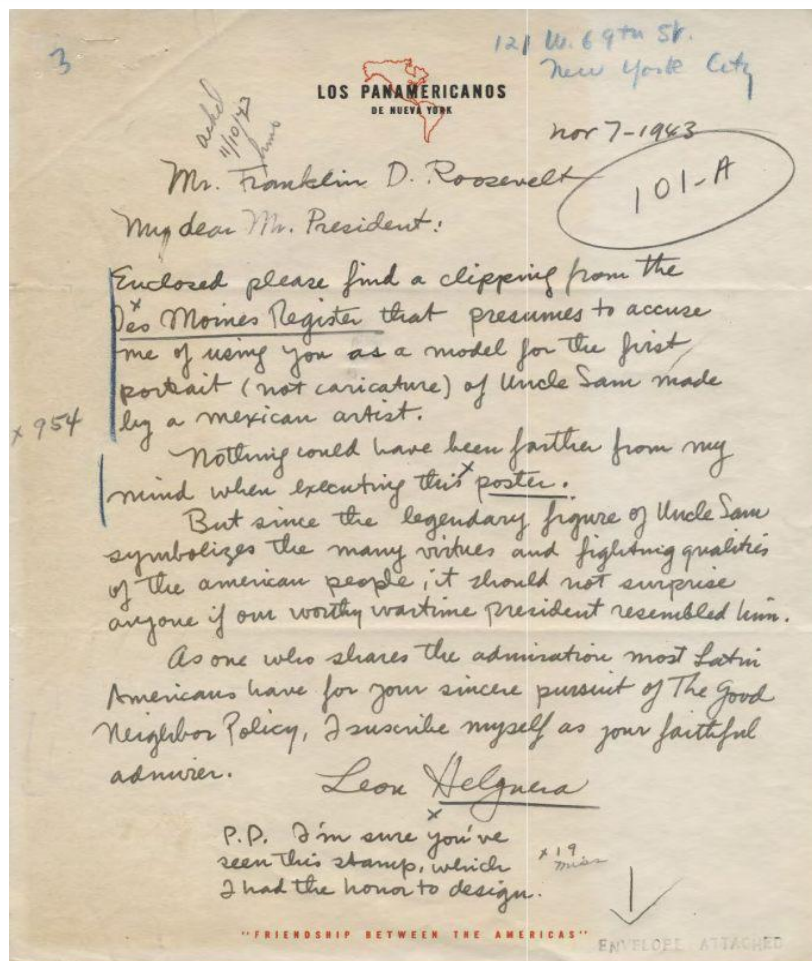 3
121 W. 69th St.
New York City
LOS PANAMERICANOS
DE NUEVA YORK
11/10/43
Nov 7-1943
101-A
Mr. Franklin D. Roosevelt
My dear Mr. President:
Enclosed please find a clipping from the
Des Moines Register that presumes to accuse
me of using you as a model for the first
portrait (not caricature) of Uncle Sam made
by a mexican artist.
x 954
Nothing could have been farther from my
mind when executing this x poster.
But since the legendary figure of Uncle Sam
symbolizes the many virtues and fighting qualities
of the american people, it should not surprise
anyone if our worthy wartime president resembled him.
As one who shares the admiration most Latin
Americans have for your sincere pursuit of The Good
Neighbor Policy, I suscribe myself as your faithful
admirer.
Leon Helguera
x
P.D. I'm sure you've
seen this stamp, which
I had the honor to design.
x 19
misc
"FRIENDSHIP BETWEEN THE AMERICAS"
ENVELOPE ATTACHED